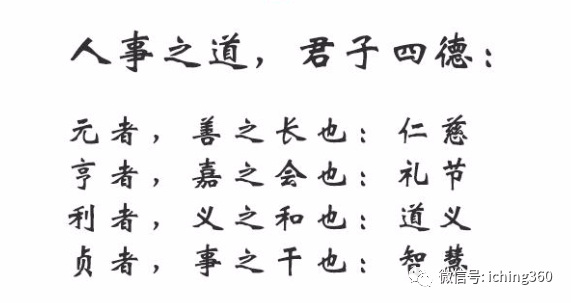 人事之道，君子四德：
元者，善之长也：仁慈
亨者，嘉之会也：礼节
利者，义之和也：道义
贞者，事之干也：智慧
微信号: iching360